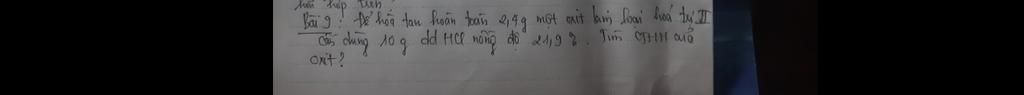 hỗn hợp trên.
Bài 9: Để hoà tan hoàn toàn 2,4g một oxit kim loại hoá trị II
cần dùng 10g dd HCl nồng độ 21,9%. Tìm CTHH của
oxit?